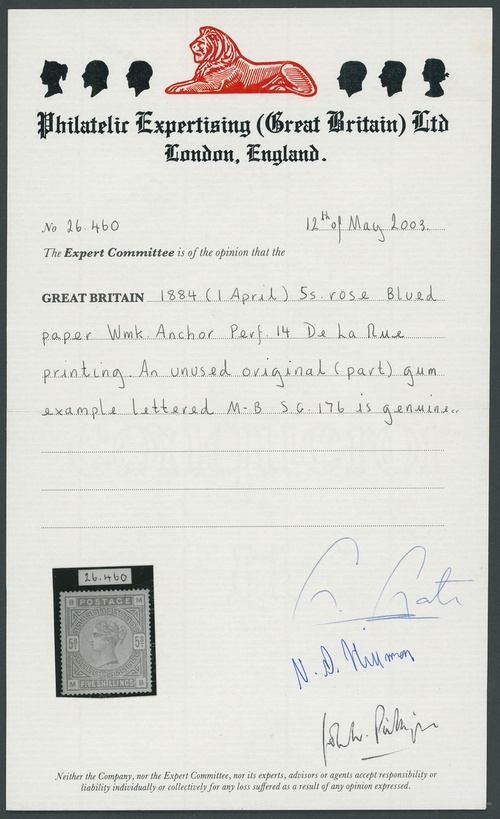 Philatelic Expertising (Great Britain) Ltd
London, England.
No 26.460 12th of May 2003.
The Expert Committee is of the opinion that the
GREAT BRITAIN 1884 (1 April) 5s. rose Blued
paper Wmk. Anchor Perf. 14 De La Rue
printing. An unused original (part) gum
example lettered M-B S.G. 176 is genuine..
26.460
B POSTAGE M
5s 5s
M FIVE SHILLINGS B
Neither the Company, nor the Expert Committee, nor its experts, advisors or agents accept responsibility or
liability individually or collectively for any loss suffered as a result of any opinion expressed.